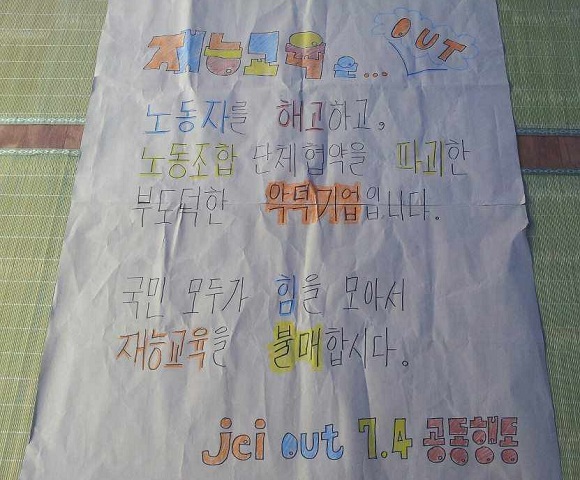 재능교육은... OUT
노동자를 해고하고,
노동조합 단체협약을 파괴한
부도덕한 악덕기업입니다.
국민 모두가 힘을 모아서
재능교육을 불매합시다.
jei out 7.4 공동행동